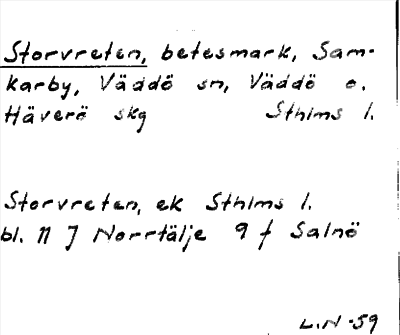 Storvreten, betesmark, Sam-
karby, Väddö sn, Väddö o.
Häverö skg Sthlms l.
Storvreten, ek Sthlms l.
bl. 11 J Norrtälje 9 f Salnö
L.N -59